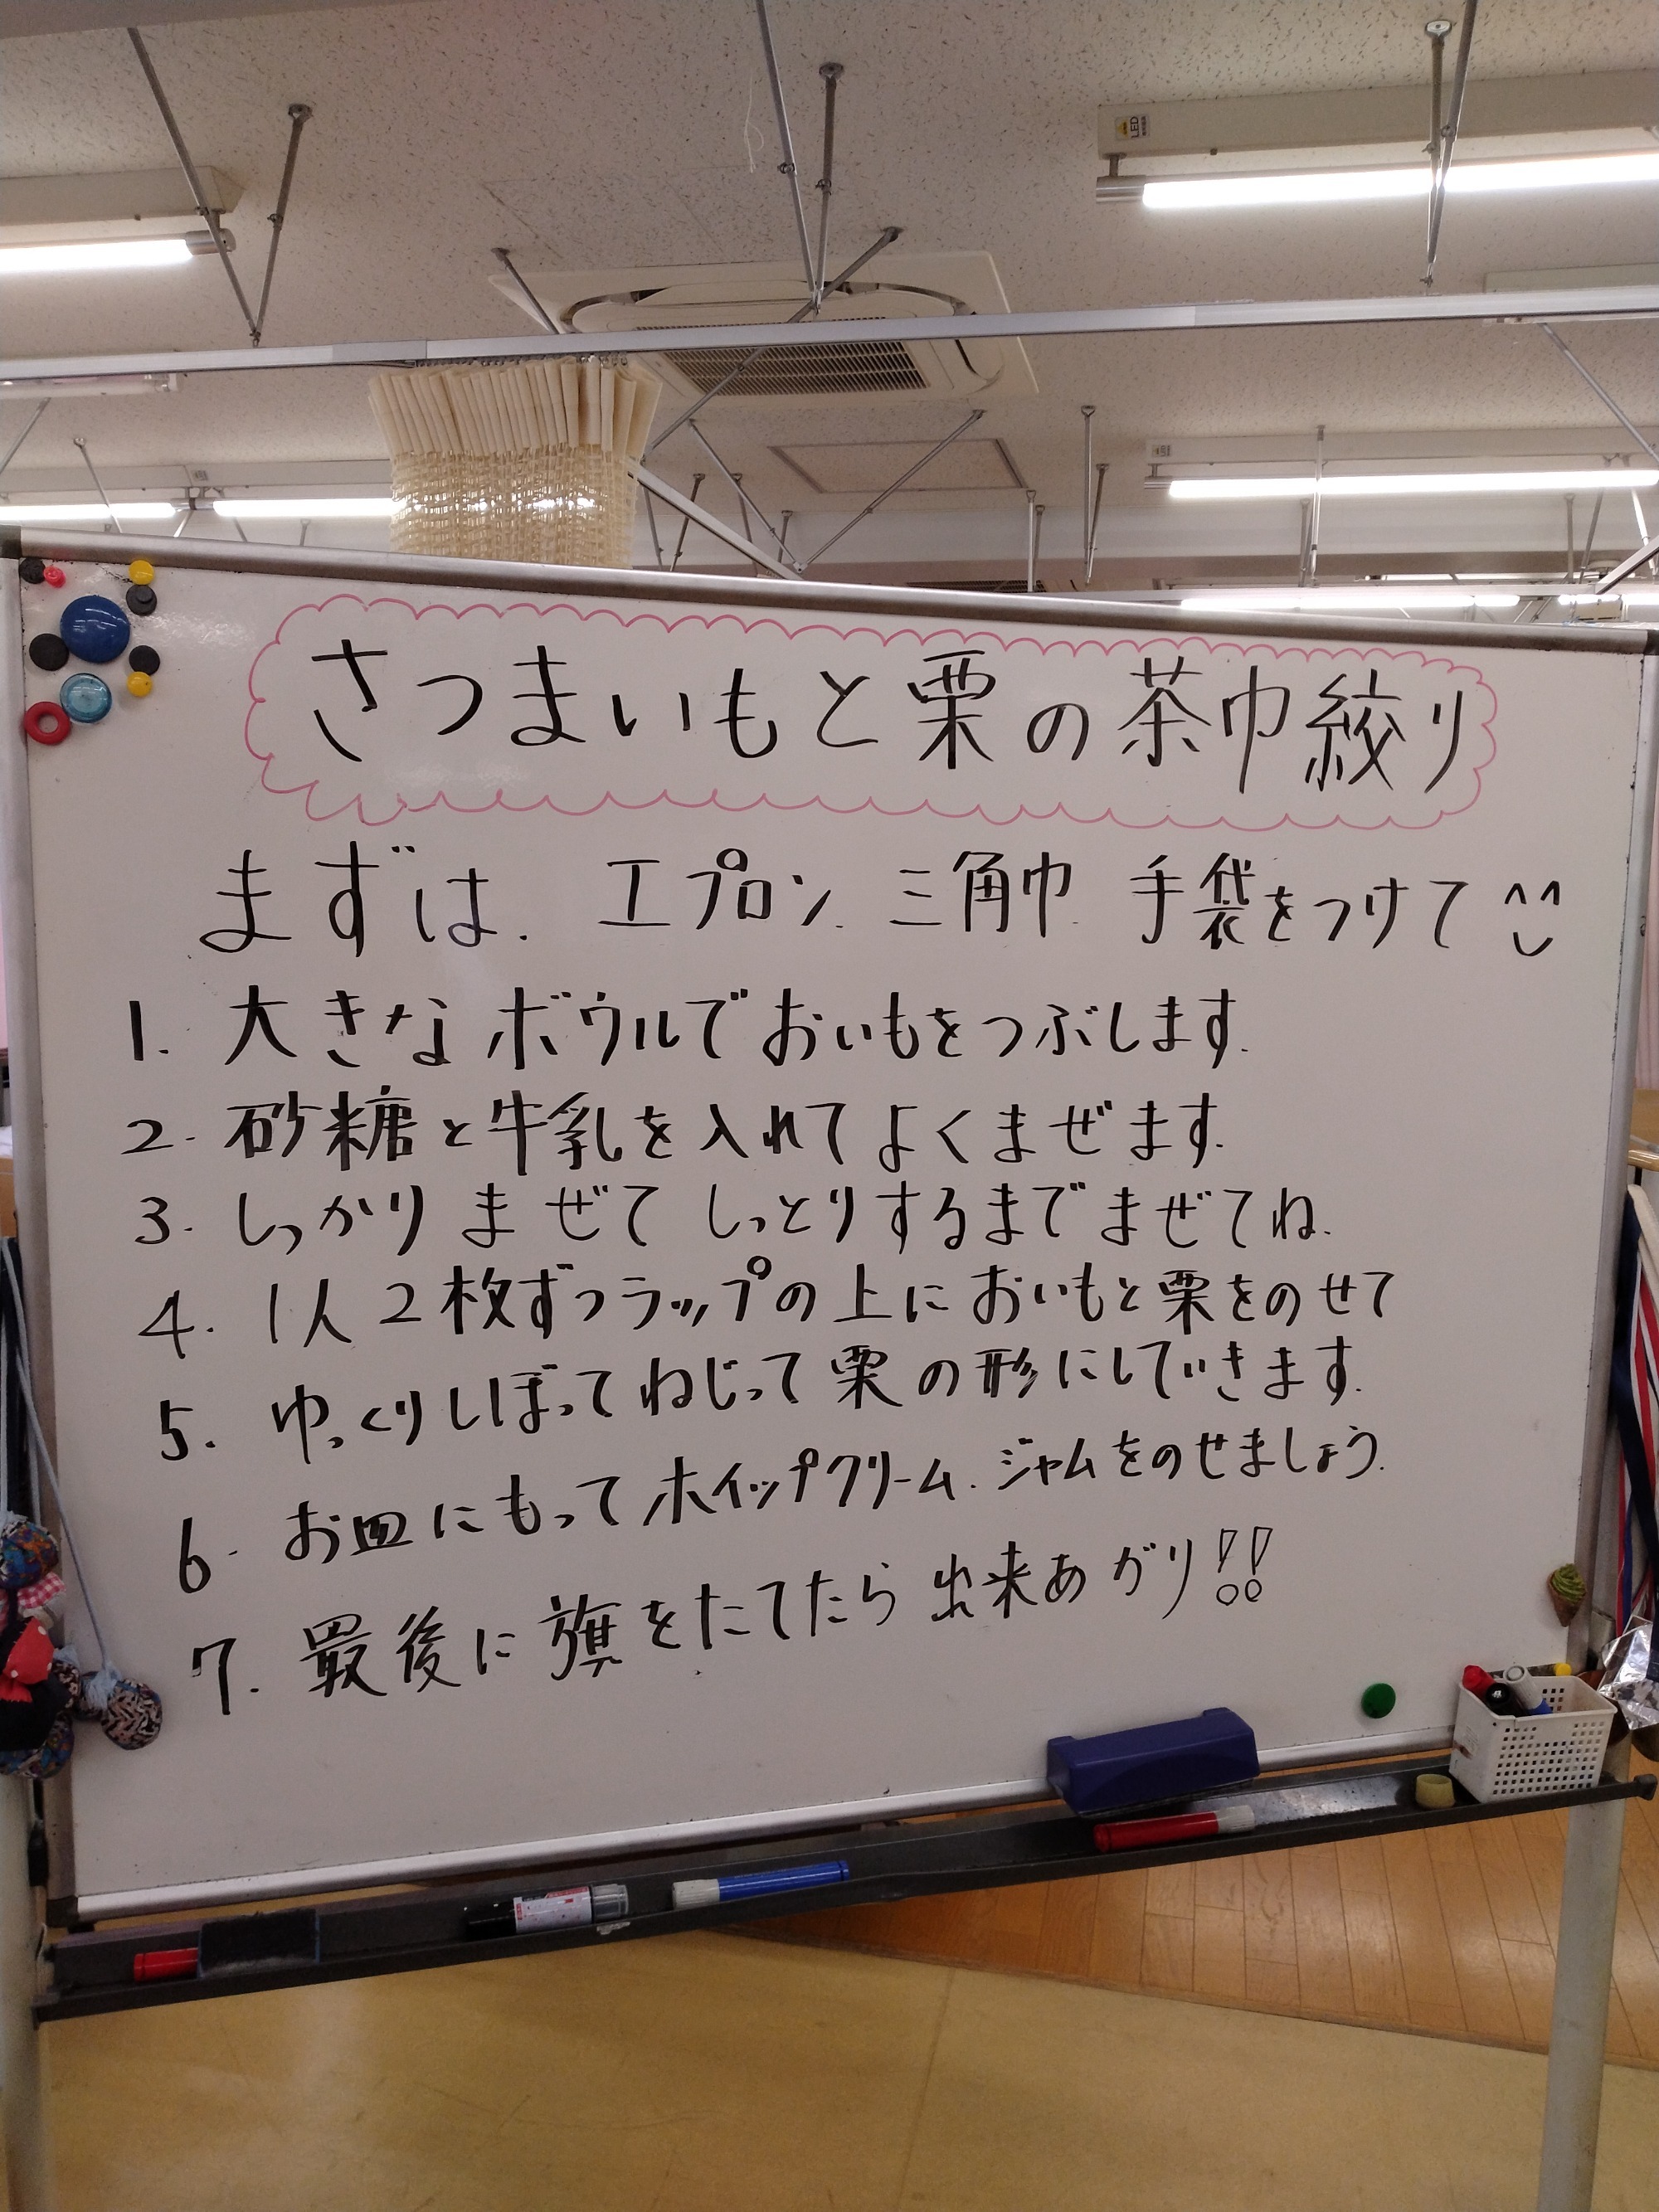 LED
さつまいもと栗の茶巾絞り
まずは. エプロン. 三角巾. 手袋をつけて ^^
1. 大きなボウルでおいもをつぶします.
2. 砂糖と牛乳を入れてよくまぜます.
3. しっかりまぜてしっとりするまでまぜてね.
4. 1人2枚ずつラップの上においもと栗をのせて
5. ゆっくりしぼってねじって栗の形にしていきます.
6. お皿にもってホイップクリーム. ジャムをのせましょう.
7. 最後に旗をたてたら出来あがり!!